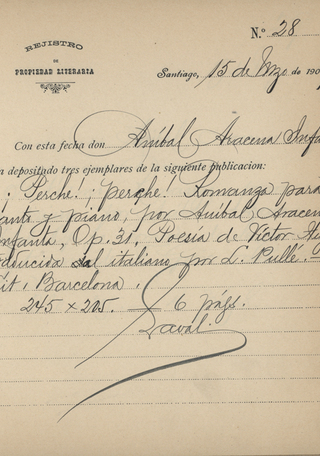 REJISTRO
DE
PROPIEDAD LITERARIA
N.º 28
Santiago, 15 de Mzo de 190
Con esta fecha don Aníbal Aracena Infa
a depositado tres ejemplares de la siguiente publicacion:
¡Perché! ¡perché! Romanza para
canto y piano, por Aníbal Aracena
Infanta, Op. 31, Poesía de Víctor
traducida al italiano por L. Pullé.
Lit., Barcelona.
245 x 205. — 6 págs.
Laval